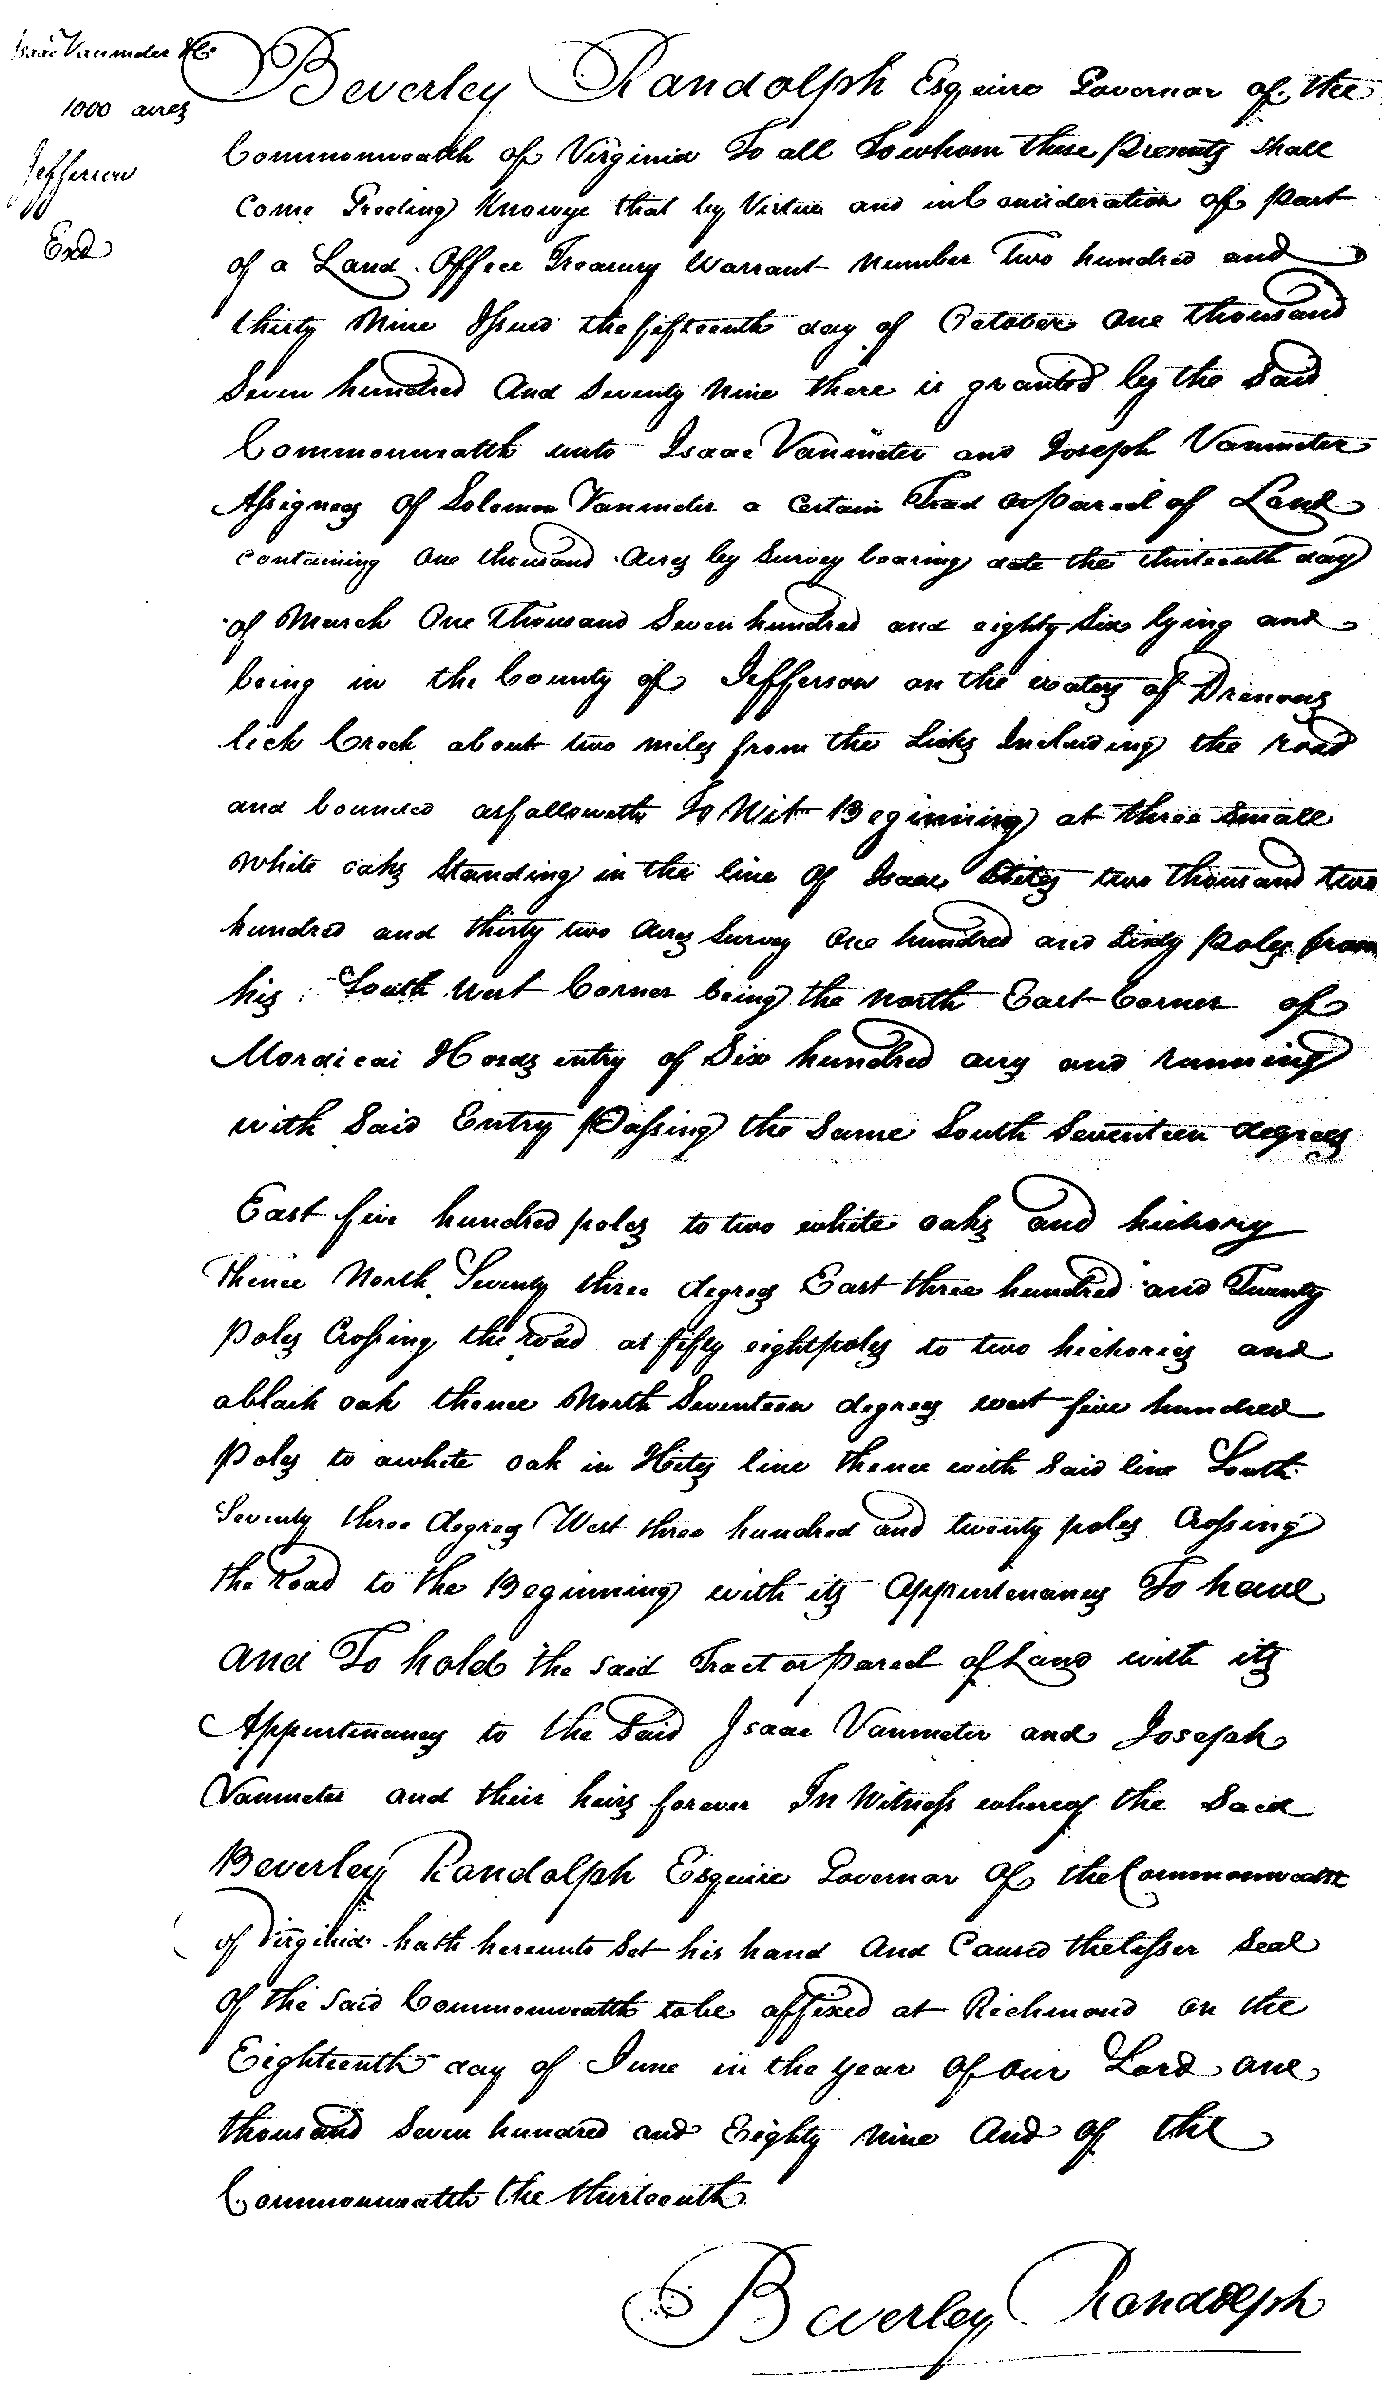 Isaac Vanmeter &C
1000 acres
Jefferson
Exd
Beverley Randolph Esquire Governor of the
Commonwealth of Virginia To all To whom these Presents shall
Come Greeting Know ye that by Virtue and in Consideration of part
of a Land Office Treasury Warrant Number Two hundred and
thirty Nine Issued the fifteenth day of October One thousand
Seven hundred And Seventy Nine there is granted by the Said
Commonwealth unto Isaac Vanmeter and Joseph Vanmeter
Assignees of Solomon Vanmeter a Certain Tract or Parcel of Land
containing One thousand Acres by Survey bearing date the thirteenth day
of March One Thousand Seven hundred and eighty Six lying and
being in the County of Jefferson on the waters of Drinons
lick Creek about two miles from the Licks Including the Road
and bounded as followeth To Wit Beginning at three Small
White oaks Standing in the line Of Isaac Hites two thousand two
hundred and thirty two Acres Survey One hundred and Sixty Poles from
his South West Corner being the North East Corner of
Mordicai Hords entry of Six hundred acres and running
with Said Entry Passing the Same South Seventeen degrees
East five hundred poles to two white oaks and hickory
Thence North Seventy three degrees East three hundred and Twenty
Poles Crossing the road at fifty eight poles to two hickories and
a black oak thence North Seventeen degrees west five hundred
Poles to a white oak in Hites line thence with Said line South
Seventy three degrees West three hundred and twenty poles Crossing
the Road to the Beginning with its Appurtenances To have
and To hold the said Tract or Parcel of Land with its
Appurtenances to the Said Isaac Vanmeter and Joseph
Vanmeter and their heirs forever In Witness whereof the Said
Beverley Randolph Esquire Governor Of the Commonwealth
of Virginia hath hereunto Set his hand And Caused the lesser Seal
Of the Said Commonwealth to be affixed at Richmond on the
Eighteenth day of June in the year Of our Lord one
thousand Seven hundred and Eighty Nine And of the
Commonwealth the thirteenth
Beverley Randolph